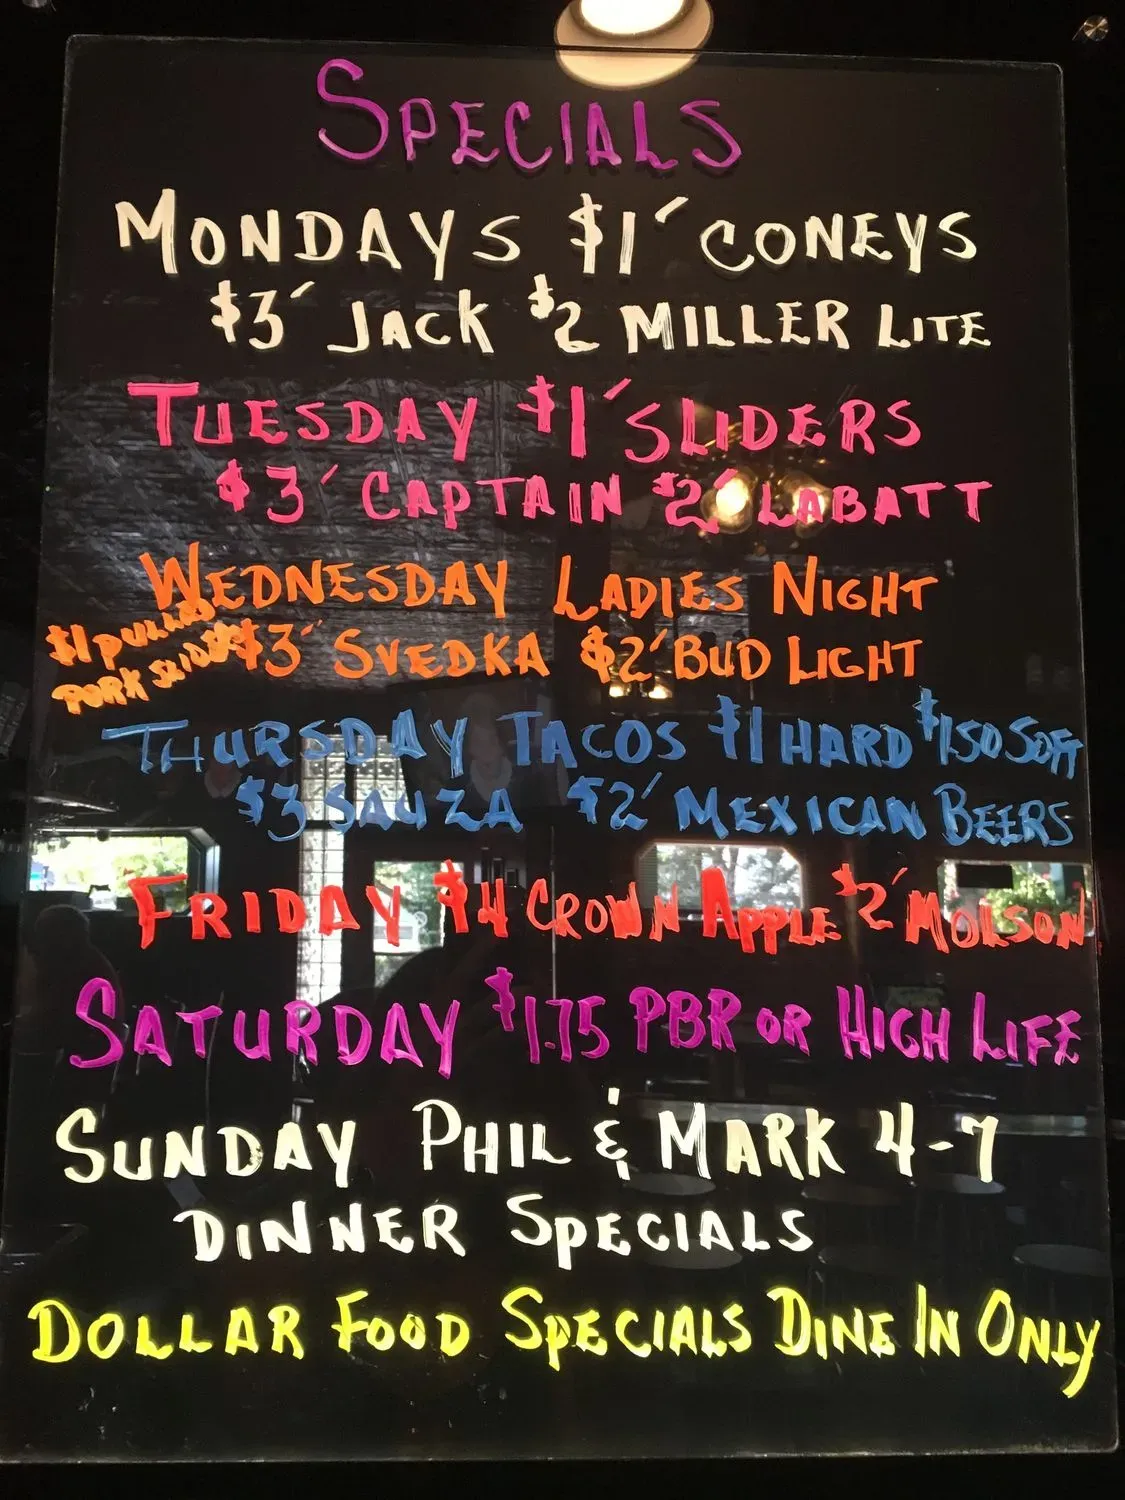 SPECIALS
MONDAYS $1 CONEYS
$3 JACK $2 MILLER LITE
TUESDAY $1 SLIDERS
$3 CAPTAIN $2 LABATT
WEDNESDAY LADIES NIGHT
$1 PULLED
PORK SLIDERS $3 SVEDKA $2 BUD LIGHT
THURSDAY TACOS $1 HARD $1.50 SOFT
$3 SAUZA $2 MEXICAN BEERS
FRIDAY $4 CROWN APPLE $2 MOLSON
SATURDAY $1.75 PBR OR HIGH LIFE
SUNDAY PHIL & MARK 4-7
DINNER SPECIALS
DOLLAR FOOD SPECIALS DINE IN ONLY